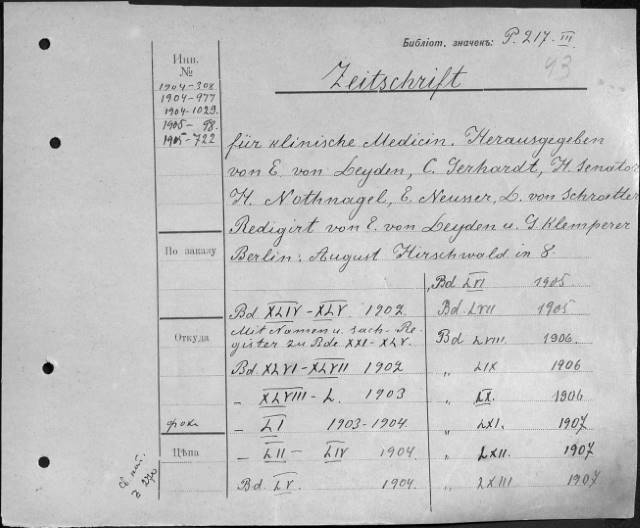 Библіот. значекъ: P. 217-III
93
Zeitschrift
Инв.
№
1904-308
1904-977
1904-1029
1905-98.
1905-722
für klinische Medicin. Herausgegeben
von E. von Leyden, C. Gerhardt, H. Senator
H. Nothnagel, E. Neusser, L. von Schroetter
Redigirt von E. von Leyden u. G. Klemperer
По заказу
Berlin: August Hirschwald in 8.
Bd. XLIV-XLV. 1902.
Mit Namen u. Sach-Re-
gister zu Bde. XXI-XLV.
Откуда
Bd. XLVI-XLVII 1902
„ XLVIII-L. 1903
„ LI 1903-1904
Цѣна
„ LII-LIV 1904.
Bd. LV. 1904.
Bd LVI 1905
Bd. LVII 1905
Bd LVIII. 1906.
„ LIX 1906
„ LX. 1906
„ LXI. 1907
„ LXII. 1907
„ LXIII 1907.